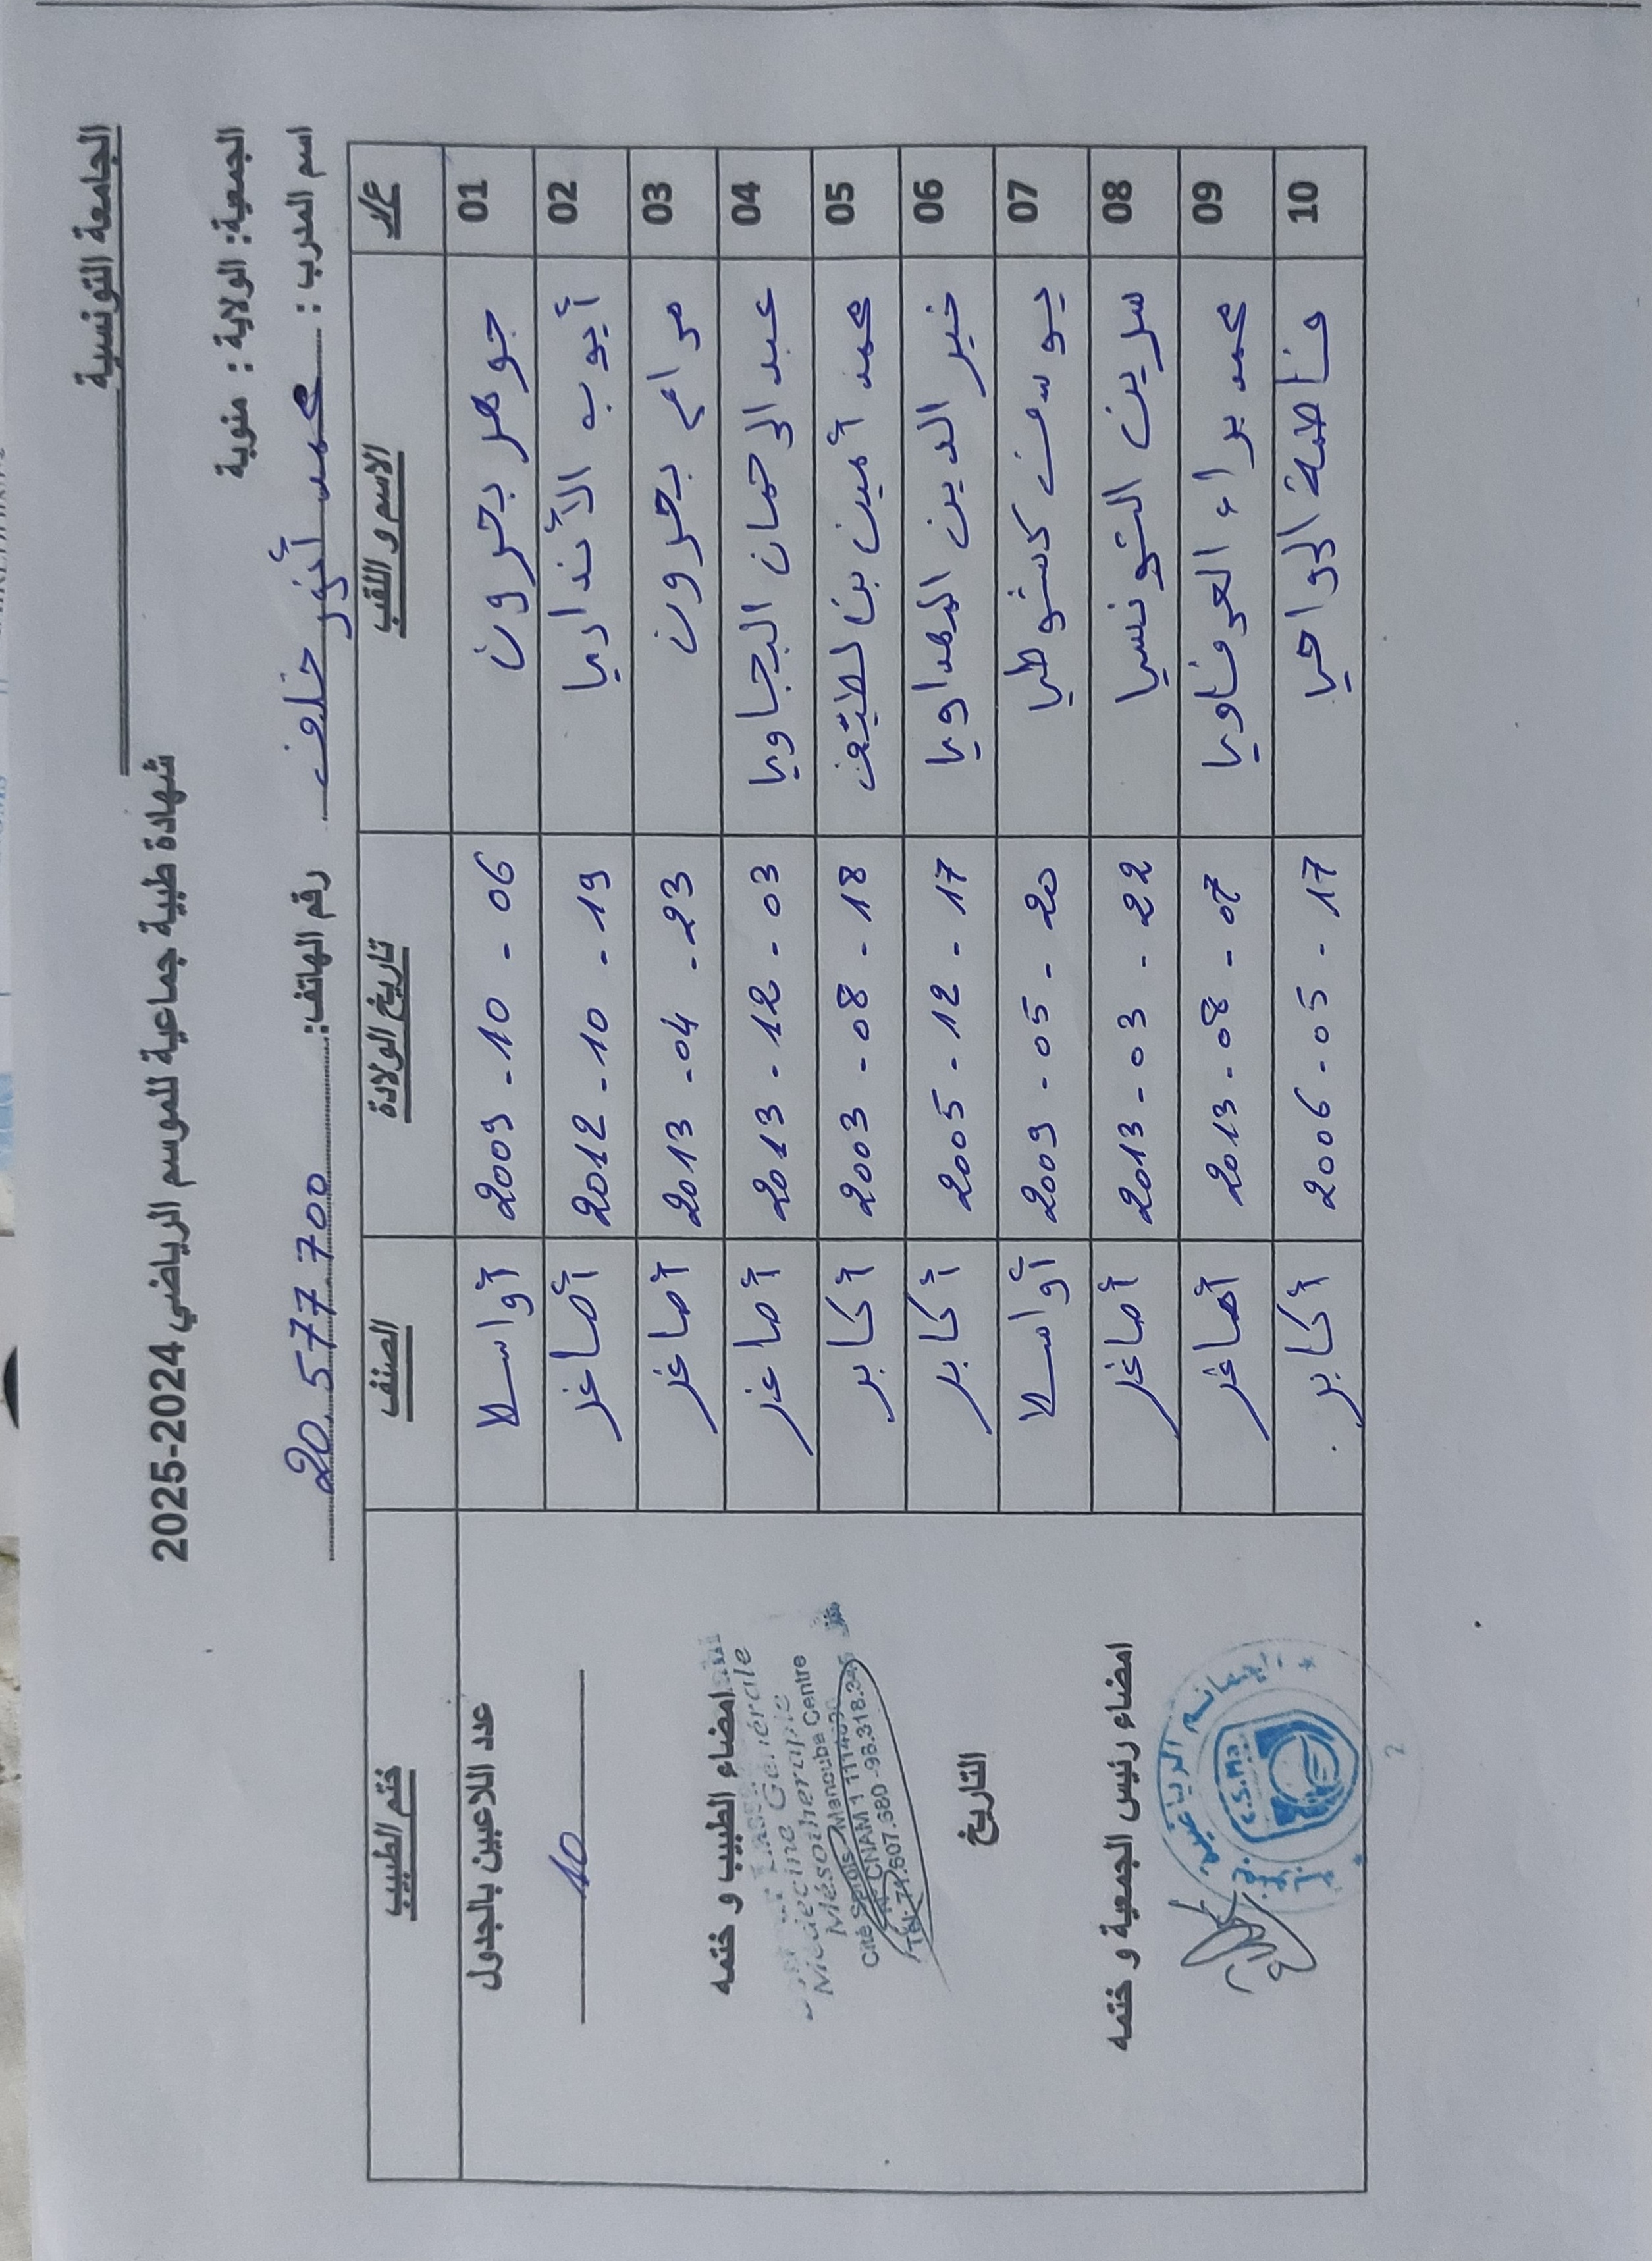 الجامعة التونسية
شهادة طبية جماعية للموسم الرياضي 2024-2025
الجمعية: الولاية : منوبة
اسم المدرب : محمد أنور خلف رقم الهاتف: 20.577.700
ع/ر الاسم و اللقب تاريخ الولادة الصنف ختم الطبيب
01 جوهر بحرون 06 - 10 - 2009 أواسط
02 أيوب 19 - 10 - 2012 أصاغر
03 مرام بحرون 23 - 04 - 2013 أصاغر
04 عبد الرحمان البجاوي 03 - 12 - 2013 أصاغر
05 محمد أمين بن لطيّف 18 - 08 - 2003 أكابر
06 خير الدين الهداوي 17 - 12 - 2005 أكابر
07 يوسف كشوطي 20 - 05 - 2009 أواسط
08 سيرين التونسي 22 - 03 - 2013 أصاغر
09 محمد براء العرفاوي 07 - 08 - 2013 أصاغر
10 فاطمة الرواحي 17 - 05 - 2006 أكابر
عدد اللاعبين بالجدول
10
امضاء الطبيب و ختمه
Médecine Générale
Mésothérapie
Manouba Centre
CNAM 1
Tél: 71.607.680 - 98.318.345
التاريخ
امضاء رئيس الجمعية و ختمه
الرياضية
C.S.Ma